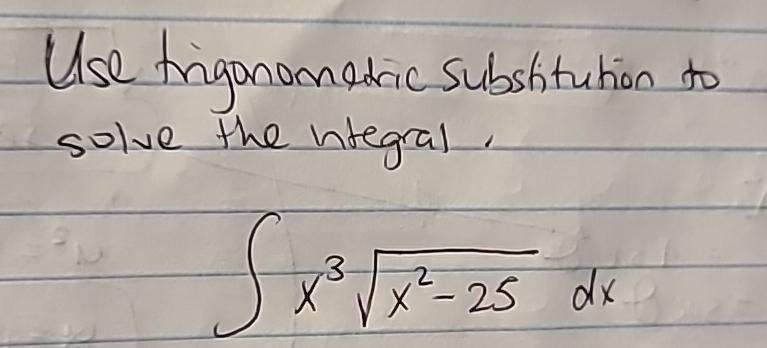 Use trigonometric substitution to
solve the ntegral.
∫ x³ √(x² - 25) dx